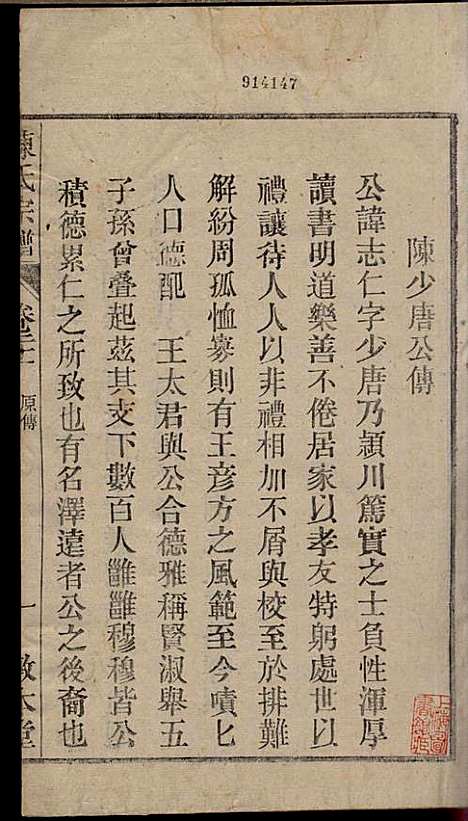 914147
陳少唐公傳
公諱志仁字少唐乃潁川篤實之士負性渾厚
讀書明道樂善不倦居家以孝友特躬處世以
禮讓待人人以非禮相加不屑與校至於排難
解紛周孤恤寡則有王彥方之風範至今嘖匕
人口德配　王太君與公合德雅稱賢淑舉五
子孫曾疊起茲其支下數百人雝雝穆穆皆公
積德累仁之所致也有名澤遠者公之後裔也
陳氏宗譜
原傳
一
敬本堂